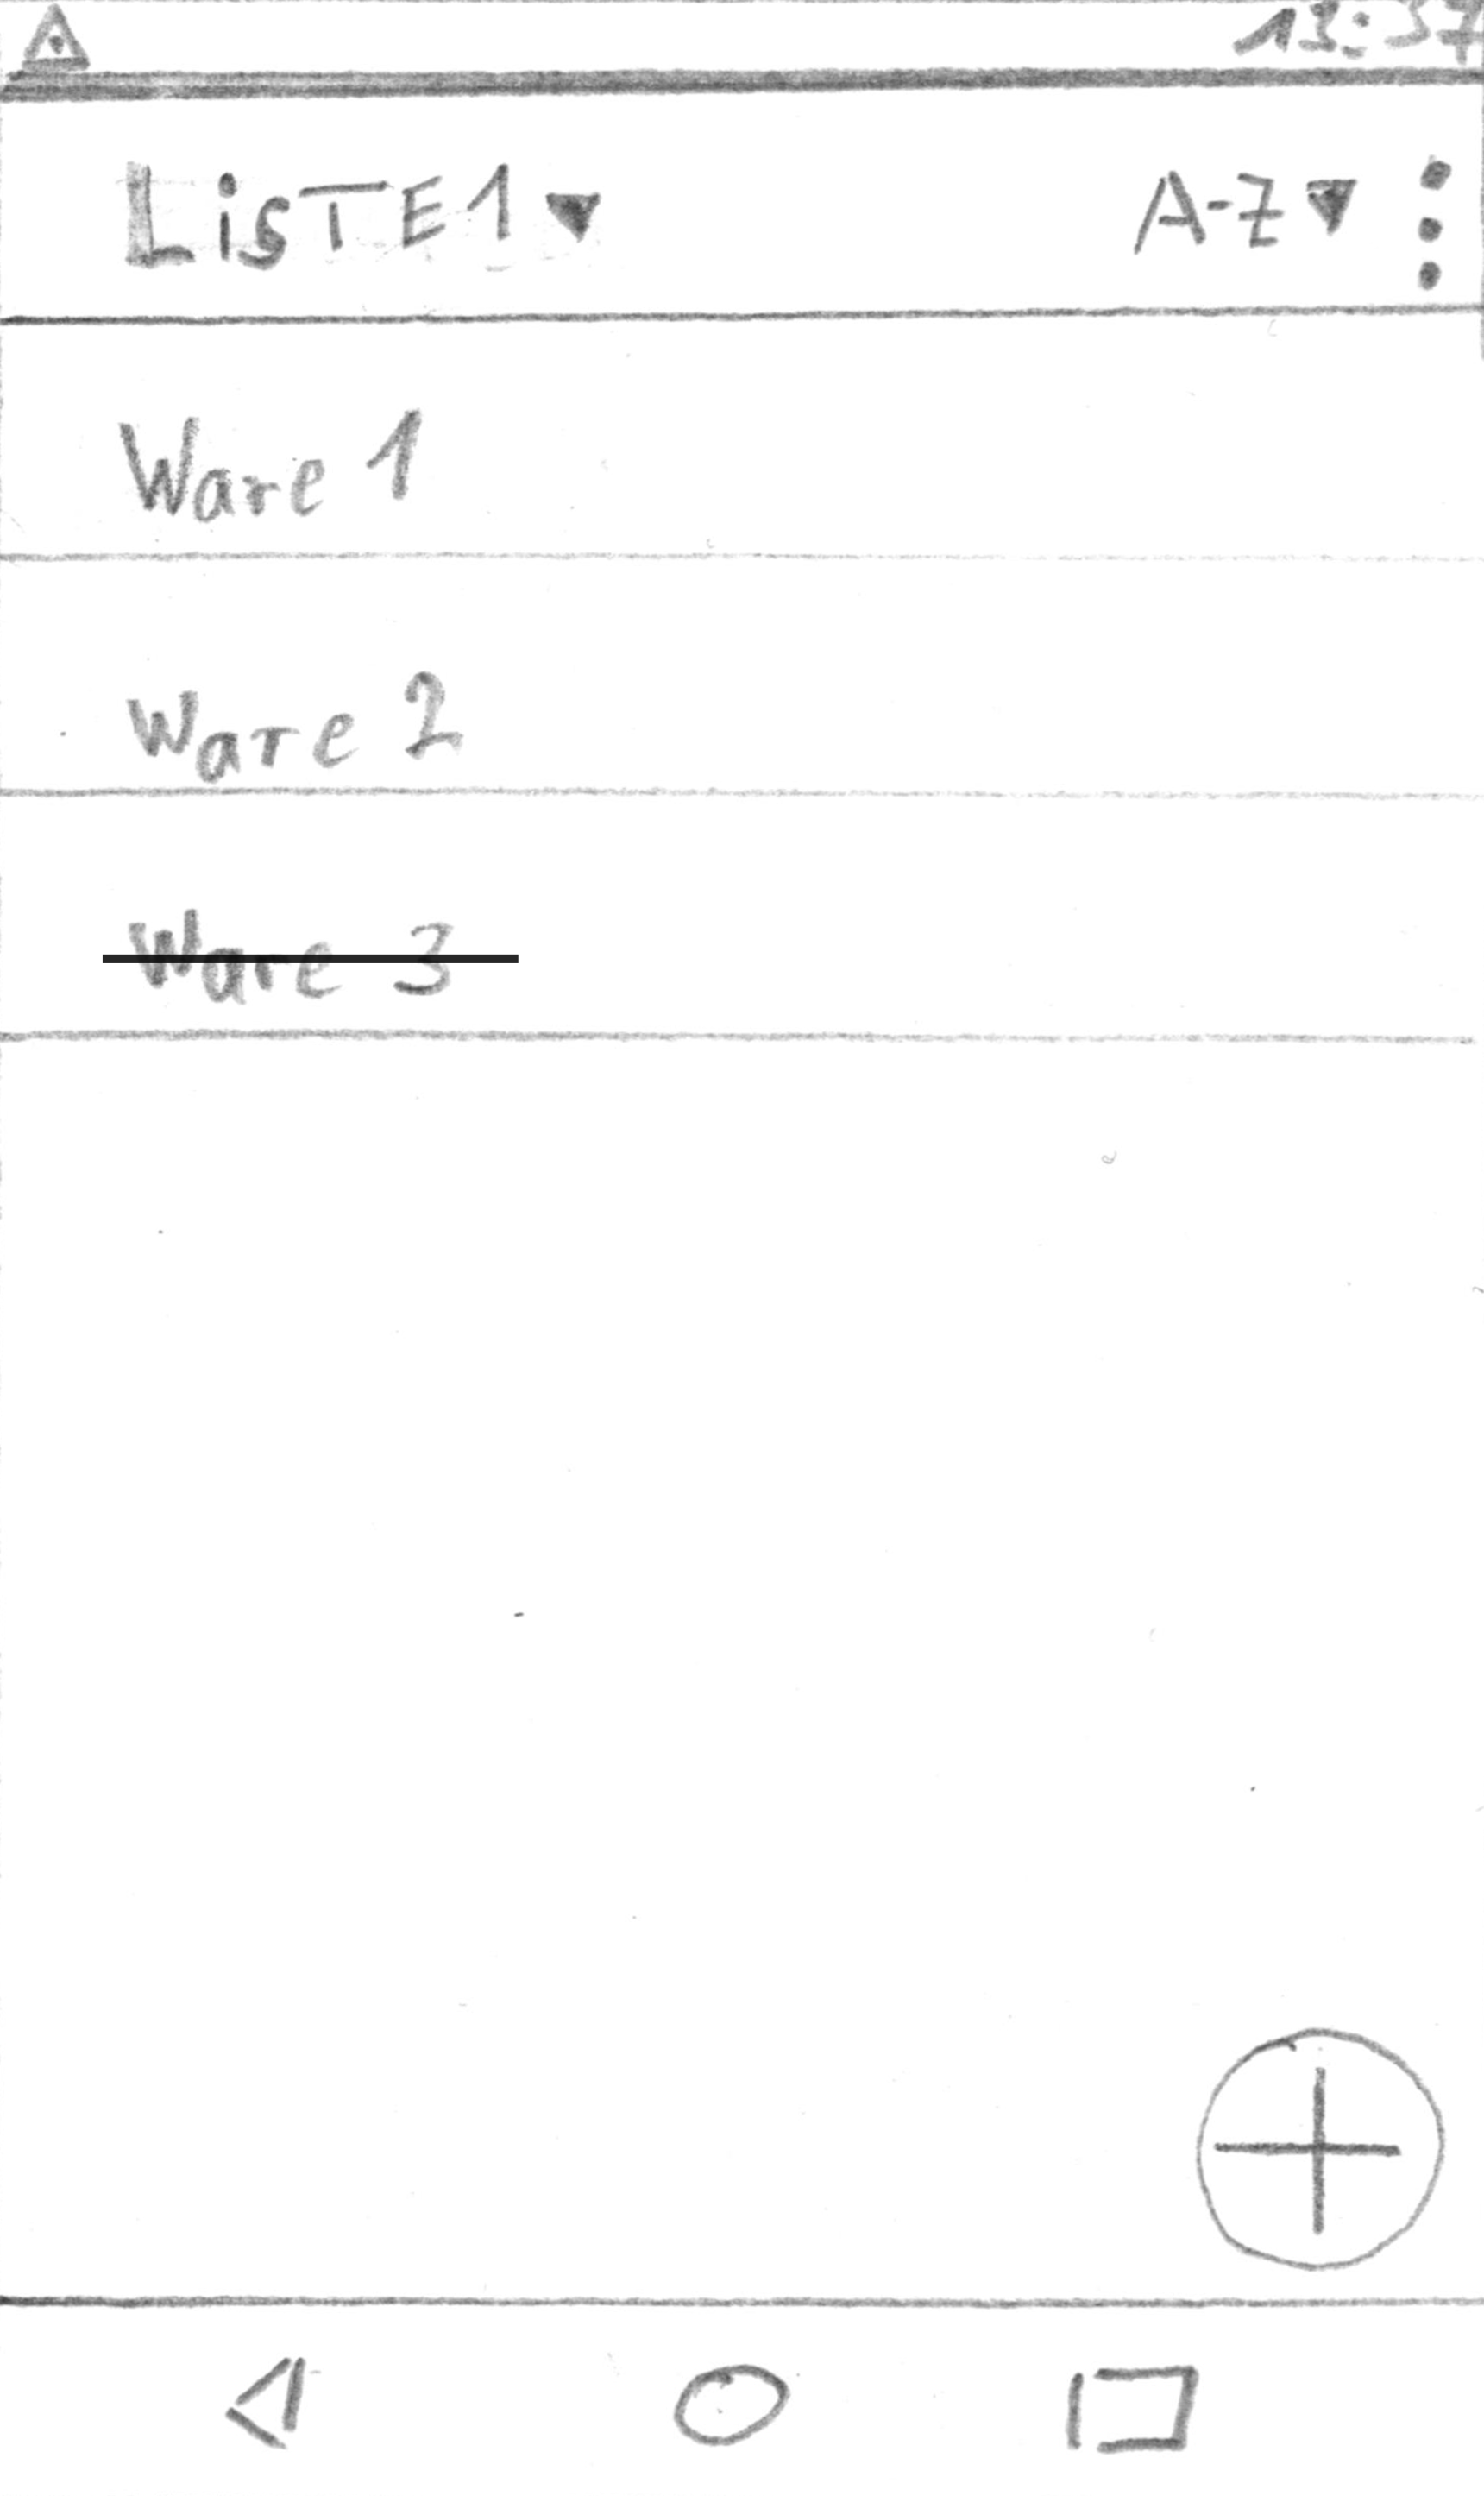 13:37
LisTE1 A-Z
Ware 1
Ware 2
Ware 3